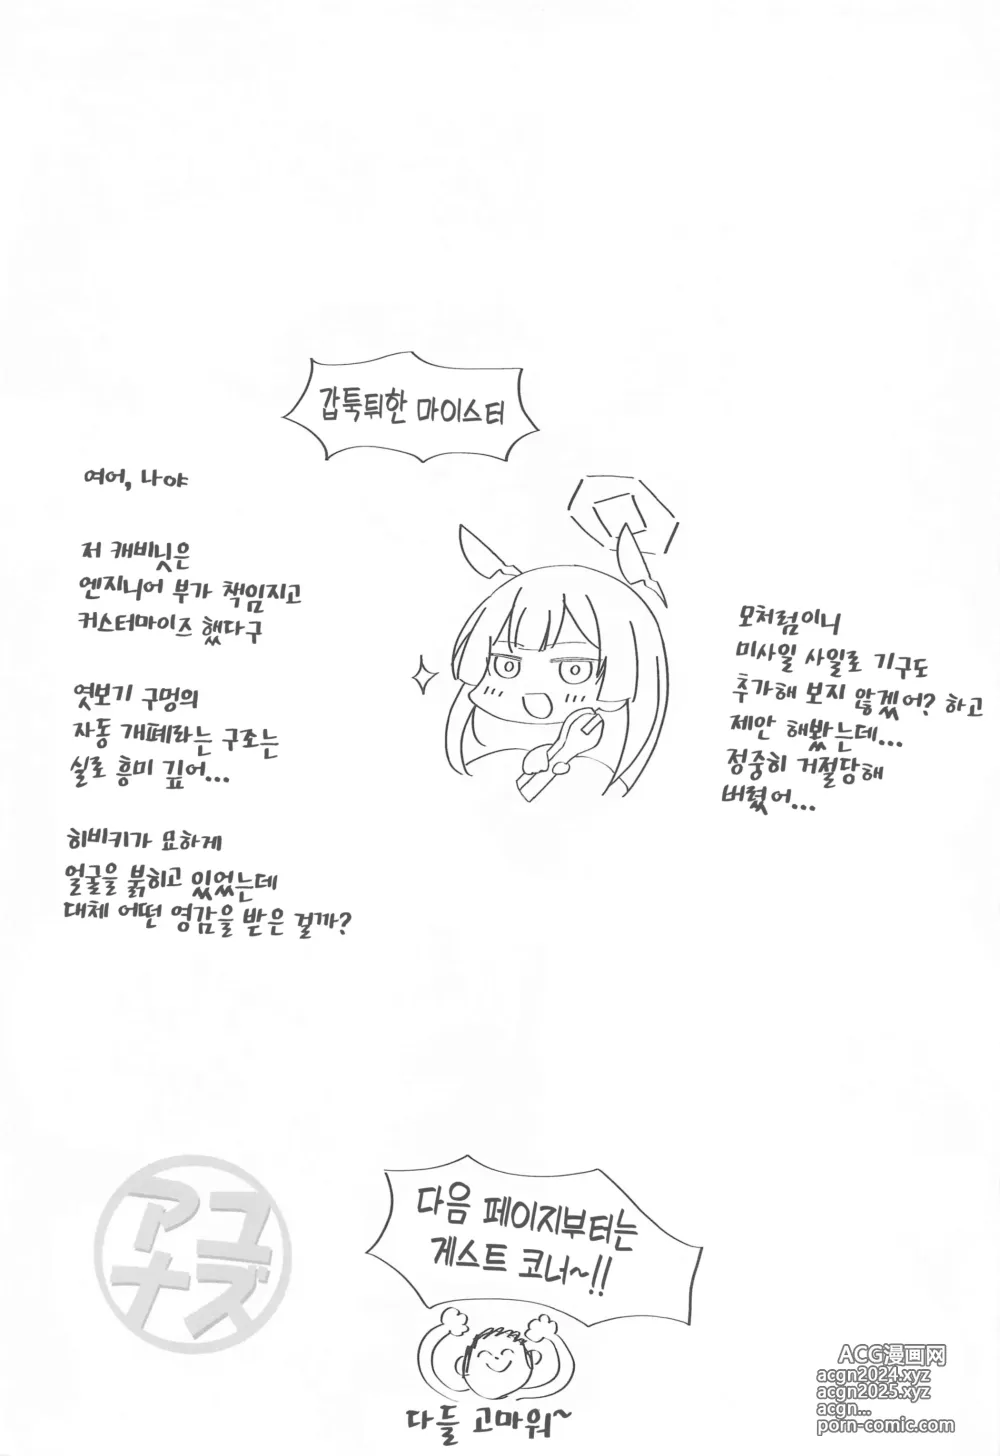 갑툭튀한 마이스터
여어, 나야
저 캐비닛은
엔지니어 부가 책임지고
커스터마이즈 했다구
엿보기 구멍의
자동 개폐라는 구조는
실로 흥미 깊어...
히비키가 묘하게
얼굴을 붉히고 있었는데
대체 어떤 영감을 받은 걸까?
모처럼이니
미사일 사일로 기구도
추가해 보지 않겠어? 하고
제안 해봤는데...
정중히 거절당해
버렸어...
アユ
ナズ
다음 페이지부터는
게스트 코너~!!
다들 고마워~
ACG漫画网
acgn2024.xyz
acgn2025.xyz
acgn...
porn-comic.com